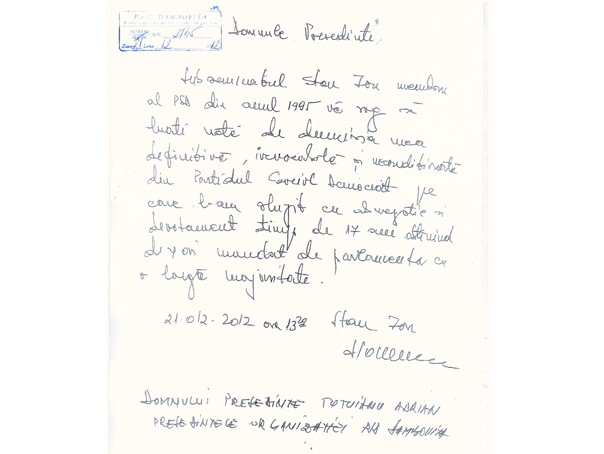 P.S.D. DAMBOVITA
NR. 2145
Ziua 21 Luna 12
Domnule Presedinte,
Subsemnatul Stan Ion membru
al PSD din anul 1995 vă rog să
luati notă de demisia mea
definitivă, irevocabilă și neconditionată
din Partidul Social Democrat pe
care l-am slujit cu abnegatie si
devotament timp de 17 ani obtinind
de 4 ori mandat de parlamentar cu
o largă majoritate.
21.012.2012 ora 13
Stan Ion
DOMNULUI PRESEDINTE TUTUIANU ADRIAN
PRESEDINTELE ORGANIZATIEI PSD DAMBOVITA